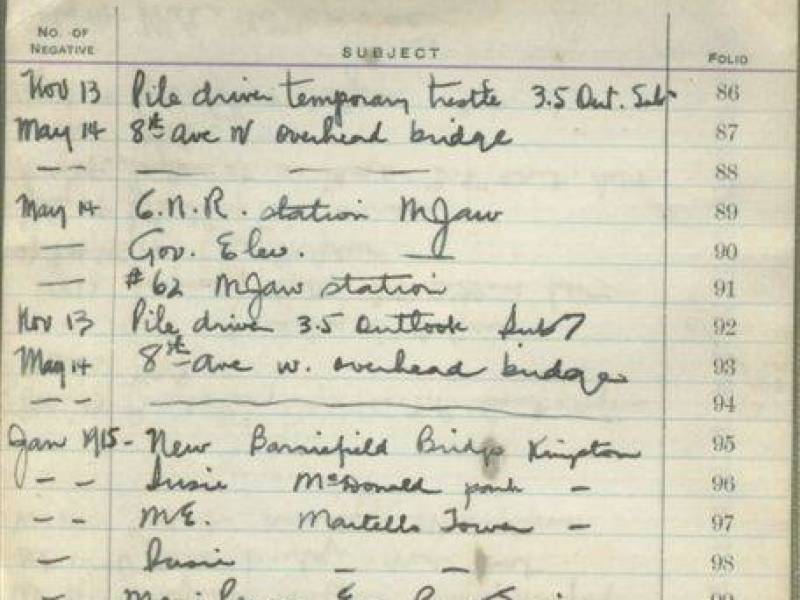 No. of Negative SUBJECT Folio
Nov 13 Pile driver temporary trestle 3.5 Out. Sub 86
May 14 8th Ave W overhead bridge 87
— — — — — — 88
May 14 C.N.R. station MJaw 89
— Gov. Elev. — 90
— #62 MJaw station 91
Nov 13 Pile driver 3.5 Outlook Sub 92
May 14 8th Ave W. overhead bridge 93
— — 94
Jan 1915 - New Barriefield Bridge Kingston 95
- - Susie McDonald park - 96
- - M.E. Martello Tower - 97
- Susie - - 98
99